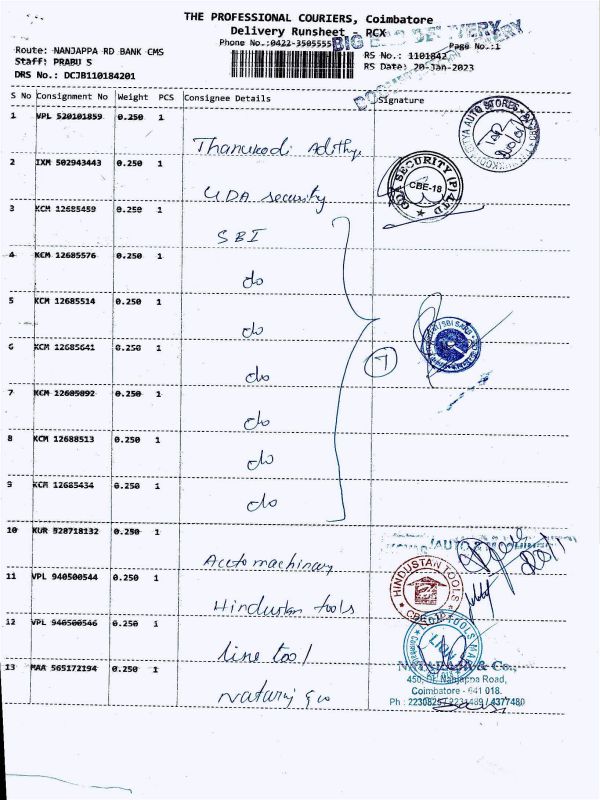 THE PROFESSIONAL COURIERS, Coimbatore
Delivery Runsheet - RCX
Phone No.:0422-3505555
BIG DELIVERY
Page No.:1
Route: NANJAPPA RD BANK CMS
RS No.: 1101842
Staff: PRABU S
RS Date: 20-Jan-2023
DRS No.: DCJB110184201
S No Consignment No Weight PCS Consignee Details Signature
1 VPL 520101859 0.250 1
AUTO STORES
Thanukodi Adithya
2 IXM 502943443 0.250 1
SECURITY (P) LTD
CBE-18
UDA security
3 KCM 12685459 0.250 1
SBI
4 KCM 12685576 0.250 1
do
5 KCM 12685514 0.250 1
do
6 KCM 12685641 0.250 1
7
do
7 KCM 12685092 0.250 1
do
8 KCM 12688513 0.250 1
do
9 KCM 12685434 0.250 1
do
10 KUR 528718132 0.250 1
Auto machinary
11 VPL 940500544 0.250 1
HINDUSTAN TOOLS
CBE-18
Hindustan tools
12 VPL 940500546 0.250 1
LION TOOLS
line tool
13 MAA 565172194 0.250 1
NATARAJ & Co.,
450, Dr. Nanjappa Road,
Coimbatore - 641 018.
Ph : 2230825 / 2231489 / 4377480
Nataraj & co